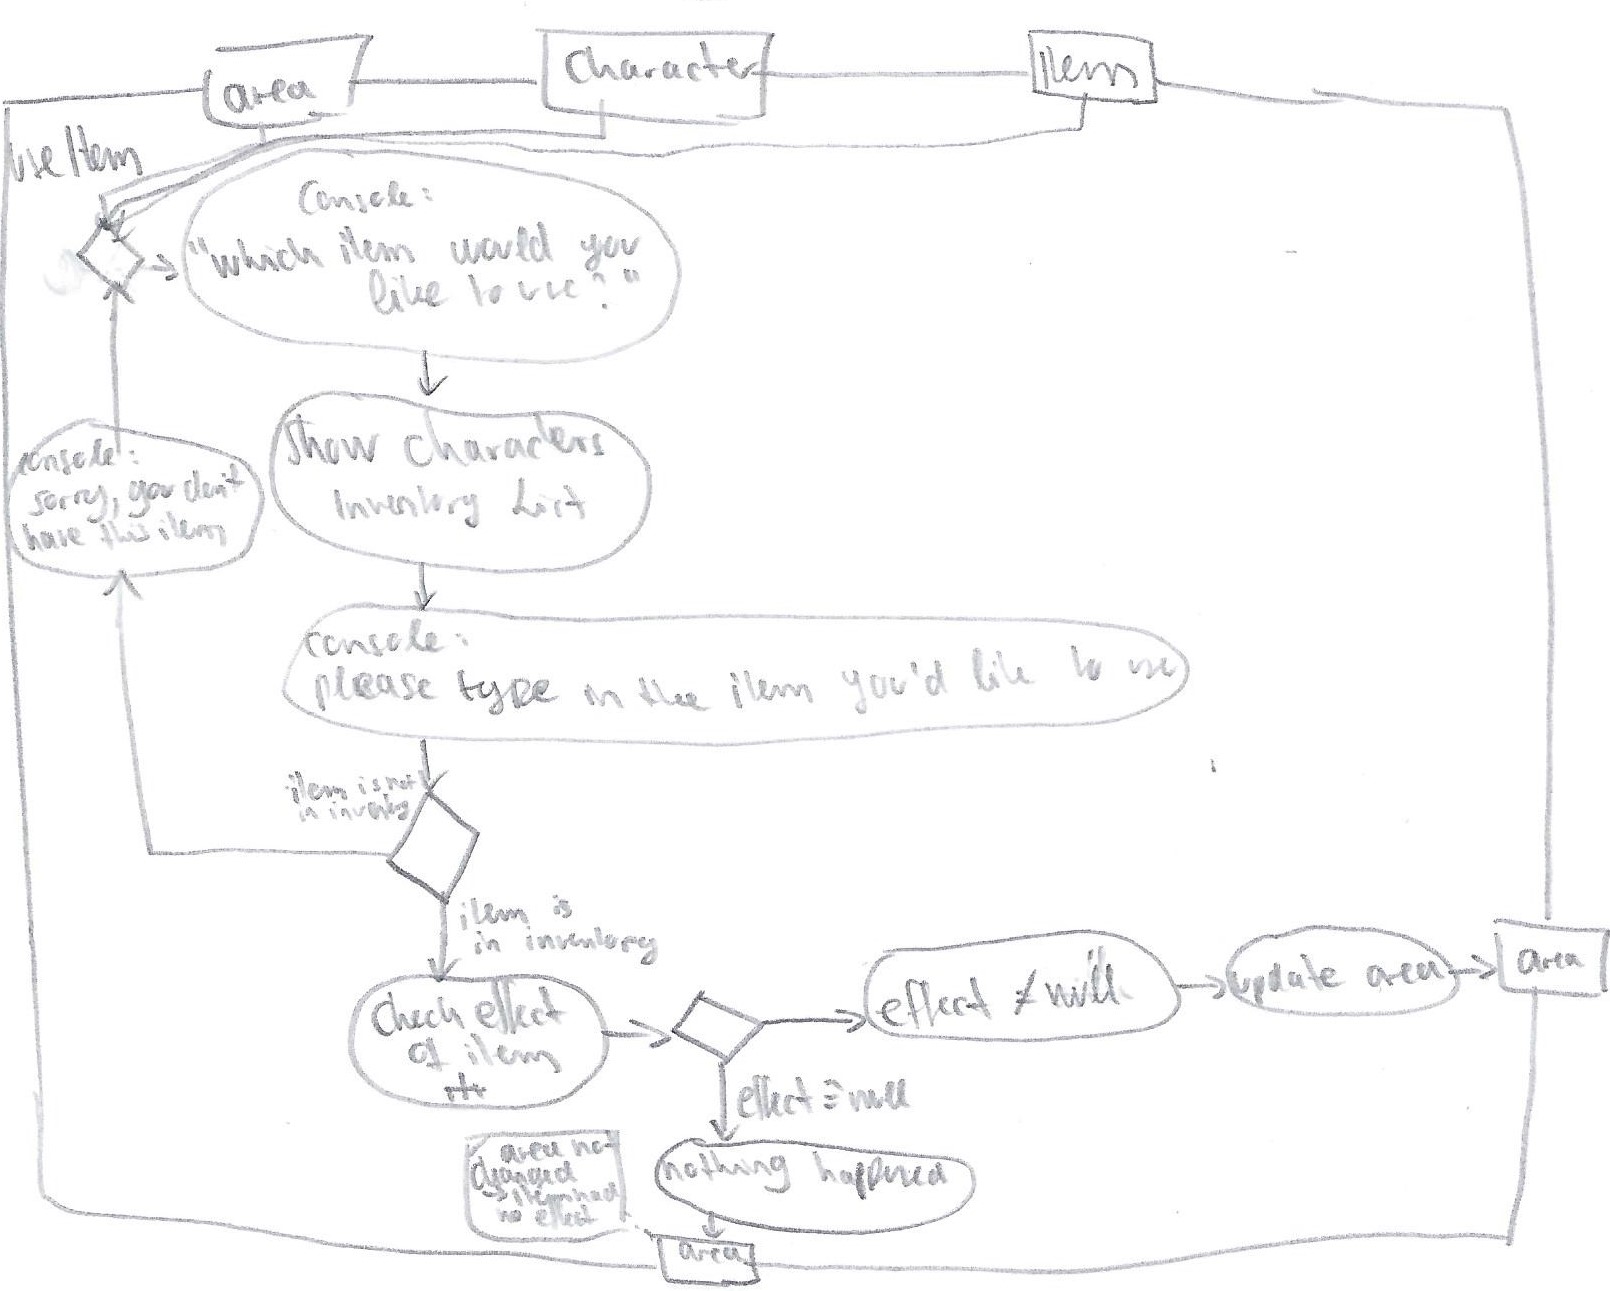 area
Character
item
use Item
Console:
"which item would you
like to use?"
show characters
Inventory List
console:
sorry, you don't
have this item
console:
please type in the item you'd like to use
item is not
in inventory
item is
in inventory
check effect
of item
effect ≠ null
update area
area
effect = null
nothing happened
area not
changed
→ item had
no effect
area